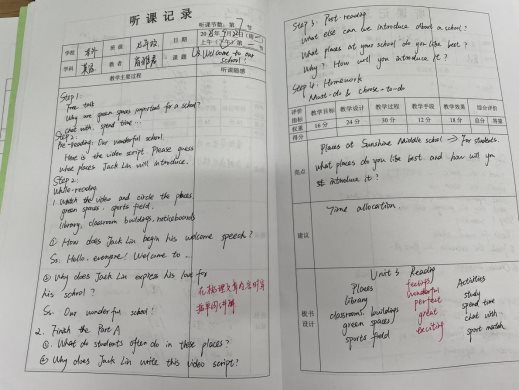 听课记录
听课节数：第 节
学校 本部 班级 七年级 日期 2025年9月22日
上午（下午）第 节
学科 英语 教师 课题 U3 Welcome to our school!
教学主要过程 听课随感
Step 1.
Free talk
Why are green spaces important for a school?
chat with, spend time...
Step 2.
Pre-reading: Our wonderful school.
Here is the video script. Please guess
what places Jack Liu will introduce.
Step 2.
While-reading
1. Watch the video and circle the places.
green spaces, sports field,
library, classroom buildings, noticeboards
① How does Jack Liu begin his welcome speech?
Ss: Hello, everyone! Welcome to ...
② Why does Jack Liu express his love for
his school?
Ss: Our wonderful school!
在梳理文章内容时有
简单的讲解
2. Finish the Part A
①. What do students often do in these places?
② Why does Jack Liu write this video script?
Step 3. Post-reading
What else can we introduce about a school?
What places at your school do you like best?
Why? How will you introduce it?
Step 4. Homework
Must-do & choose-to-do
评价指标 教学目标 教学设计 教学过程 教学手段 教学效果 综合评价
权重 16分 24分 30分 12分 18分 总分 等第
得分
亮点
Places at Sunshine Middle school → for students.
What places do you like best and how will you
introduce it?
建议
Time allocation.
板书设计
Unit 3 Reading
Places feelings Activities
library wonderful study
classroom buildings perfect spend time
green spaces great chat with
sports field exciting sport match